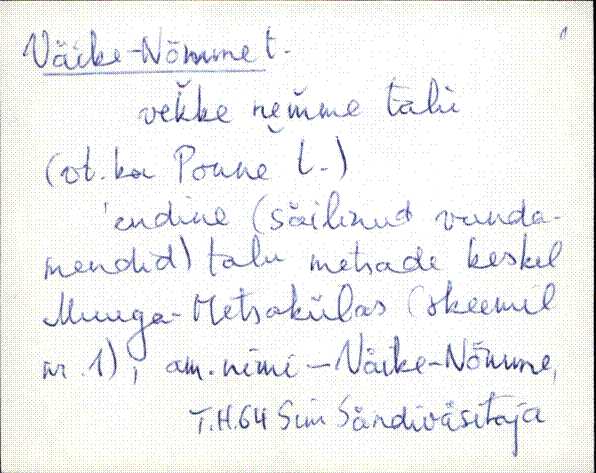 Väike-Nõmme t.
vek̆ke nem̆me talu
(vt. ka Ponne t.)
endine (säilinud vunda-
mendid) talu metsade keskel
Muuga-Metsakülas (skeemil
nr. 1), am. nimi – Väike-Nõmme,
T.H.64 Siin